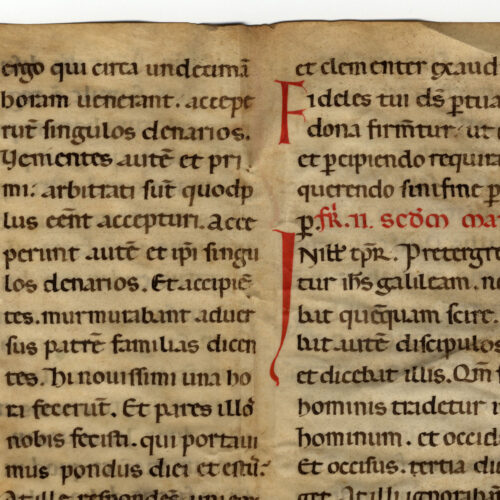 ergo qui circa undecimā
horam uenerant. accepe
rūt singulos denarios.
Uenientes autē et pri
mi. arbitrati sūt quod p
lus eēnt accepturi. Acce
perunt autē et ip̄i singu
los denarios. Et accipiē
tes. murmurabant aduer
sus patrē familias dicen
tes. Hi nouissimi una ho
ra fecerūt. Et pares illos
nobis fecisti. qui portaui
mus pondus diei et estū.
At ille respondens uni eoꝝ
et clementer exaud
Fideles tui ds̄ p̱ tua
dona firm̄tur. ut
et p̱cipiendo requira
querendo sine fine p̱
p̱. fr̄. II. scd̄m mar
In ill' tp̄r. Pretergre
tur ih̄s galileam. ne
bat quēquam scire.
bat autē discipulos
et dicebat illis. Qm̄ f
hominis tradetur
hominum. et occid
Et occisus. tertia di
get. At illi ignorabant